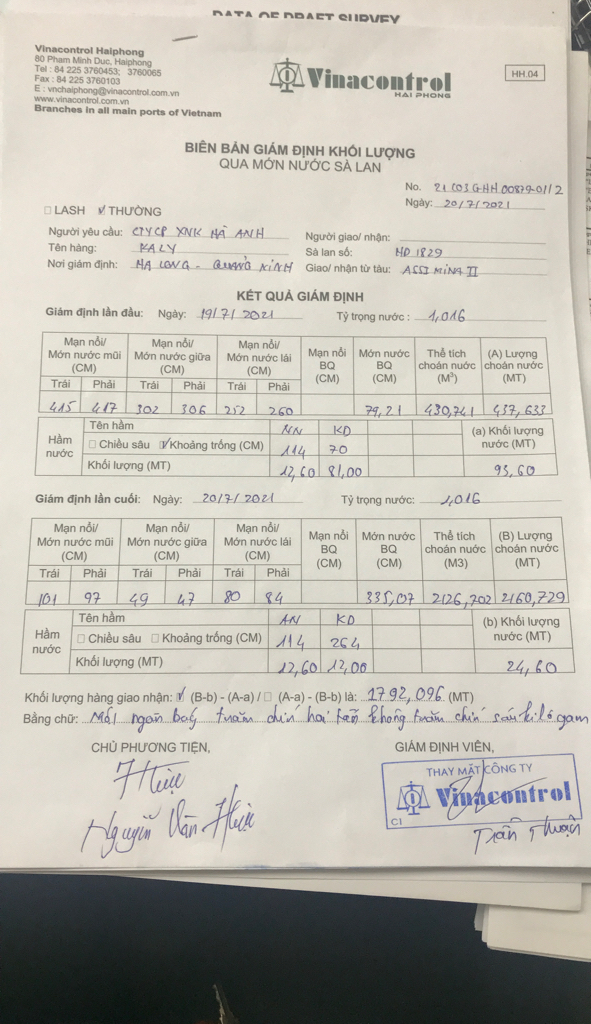 DATA OF DRAFT SURVEY
Vinacontrol Haiphong
80 Pham Minh Duc, Haiphong
Tel : 84 225 3760453; 3760065
Fax : 84 225 3760103
E : vnchaiphong@vinacontrol.com.vn
www.vinacontrol.com.vn
Branches in all main ports of Vietnam
Vinacontrol
HAI PHONG
HH.04
BIÊN BẢN GIÁM ĐỊNH KHỐI LƯỢNG
QUA MỚN NƯỚC SÀ LAN
No. 21 G03 GHH 00879-01/2
Ngày: 20/7/2021
☐ LASH ☑ THƯỜNG
Người yêu cầu: CTYCP XNK HÀ ANH Người giao/ nhận:
Tên hàng: KALY Sà lan số: HD 1829
Nơi giám định: HẠ LONG - QUẢNG NINH Giao/ nhận từ tàu: ASSIMINA II
KẾT QUẢ GIÁM ĐỊNH
Giám định lần đầu: Ngày: 19/7/2021 Tỷ trọng nước : 1,016
Mạn nổi/ Mớn nước mũi (CM) Mạn nổi/ Mớn nước giữa (CM) Mạn nổi/ Mớn nước lái (CM) Mạn nổi BQ (CM) Mớn nước BQ (CM) Thể tích choán nước (M³) (A) Lượng choán nước (MT)
Trái Phải Trái Phải Trái Phải
415 417 302 306 252 260 79,21 430,741 437,633
Hầm nước Tên hầm NN KD (a) Khối lượng nước (MT)
☐ Chiều sâu ☑ Khoảng trống (CM) 114 70
Khối lượng (MT) 12,60 81,00 93,60
Giám định lần cuối: Ngày: 20/7/2021 Tỷ trọng nước: 1,016
Mạn nổi/ Mớn nước mũi (CM) Mạn nổi/ Mớn nước giữa (CM) Mạn nổi/ Mớn nước lái (CM) Mạn nổi BQ (CM) Mớn nước BQ (CM) Thể tích choán nước (M3) (B) Lượng choán nước (MT)
Trái Phải Trái Phải Trái Phải
101 97 49 47 80 84 335,07 2126,702 2160,729
Hầm nước Tên hầm AN KD (b) Khối lượng nước (MT)
☐ Chiều sâu ☐ Khoảng trống (CM) 114 264
Khối lượng (MT) 12,60 12,00 24,60
Khối lượng hàng giao nhận: ☑ (B-b) - (A-a) / ☐ (A-a) - (B-b) là: 1792,096 (MT)
Bằng chữ: Một ngàn bảy trăm chín hai tấn không trăm chín sáu kilôgam
CHỦ PHƯƠNG TIỆN, GIÁM ĐỊNH VIÊN,
THAY MẶT CÔNG TY
Vinacontrol
C1
Nguyễn Văn Hiệu
Trần Thuận